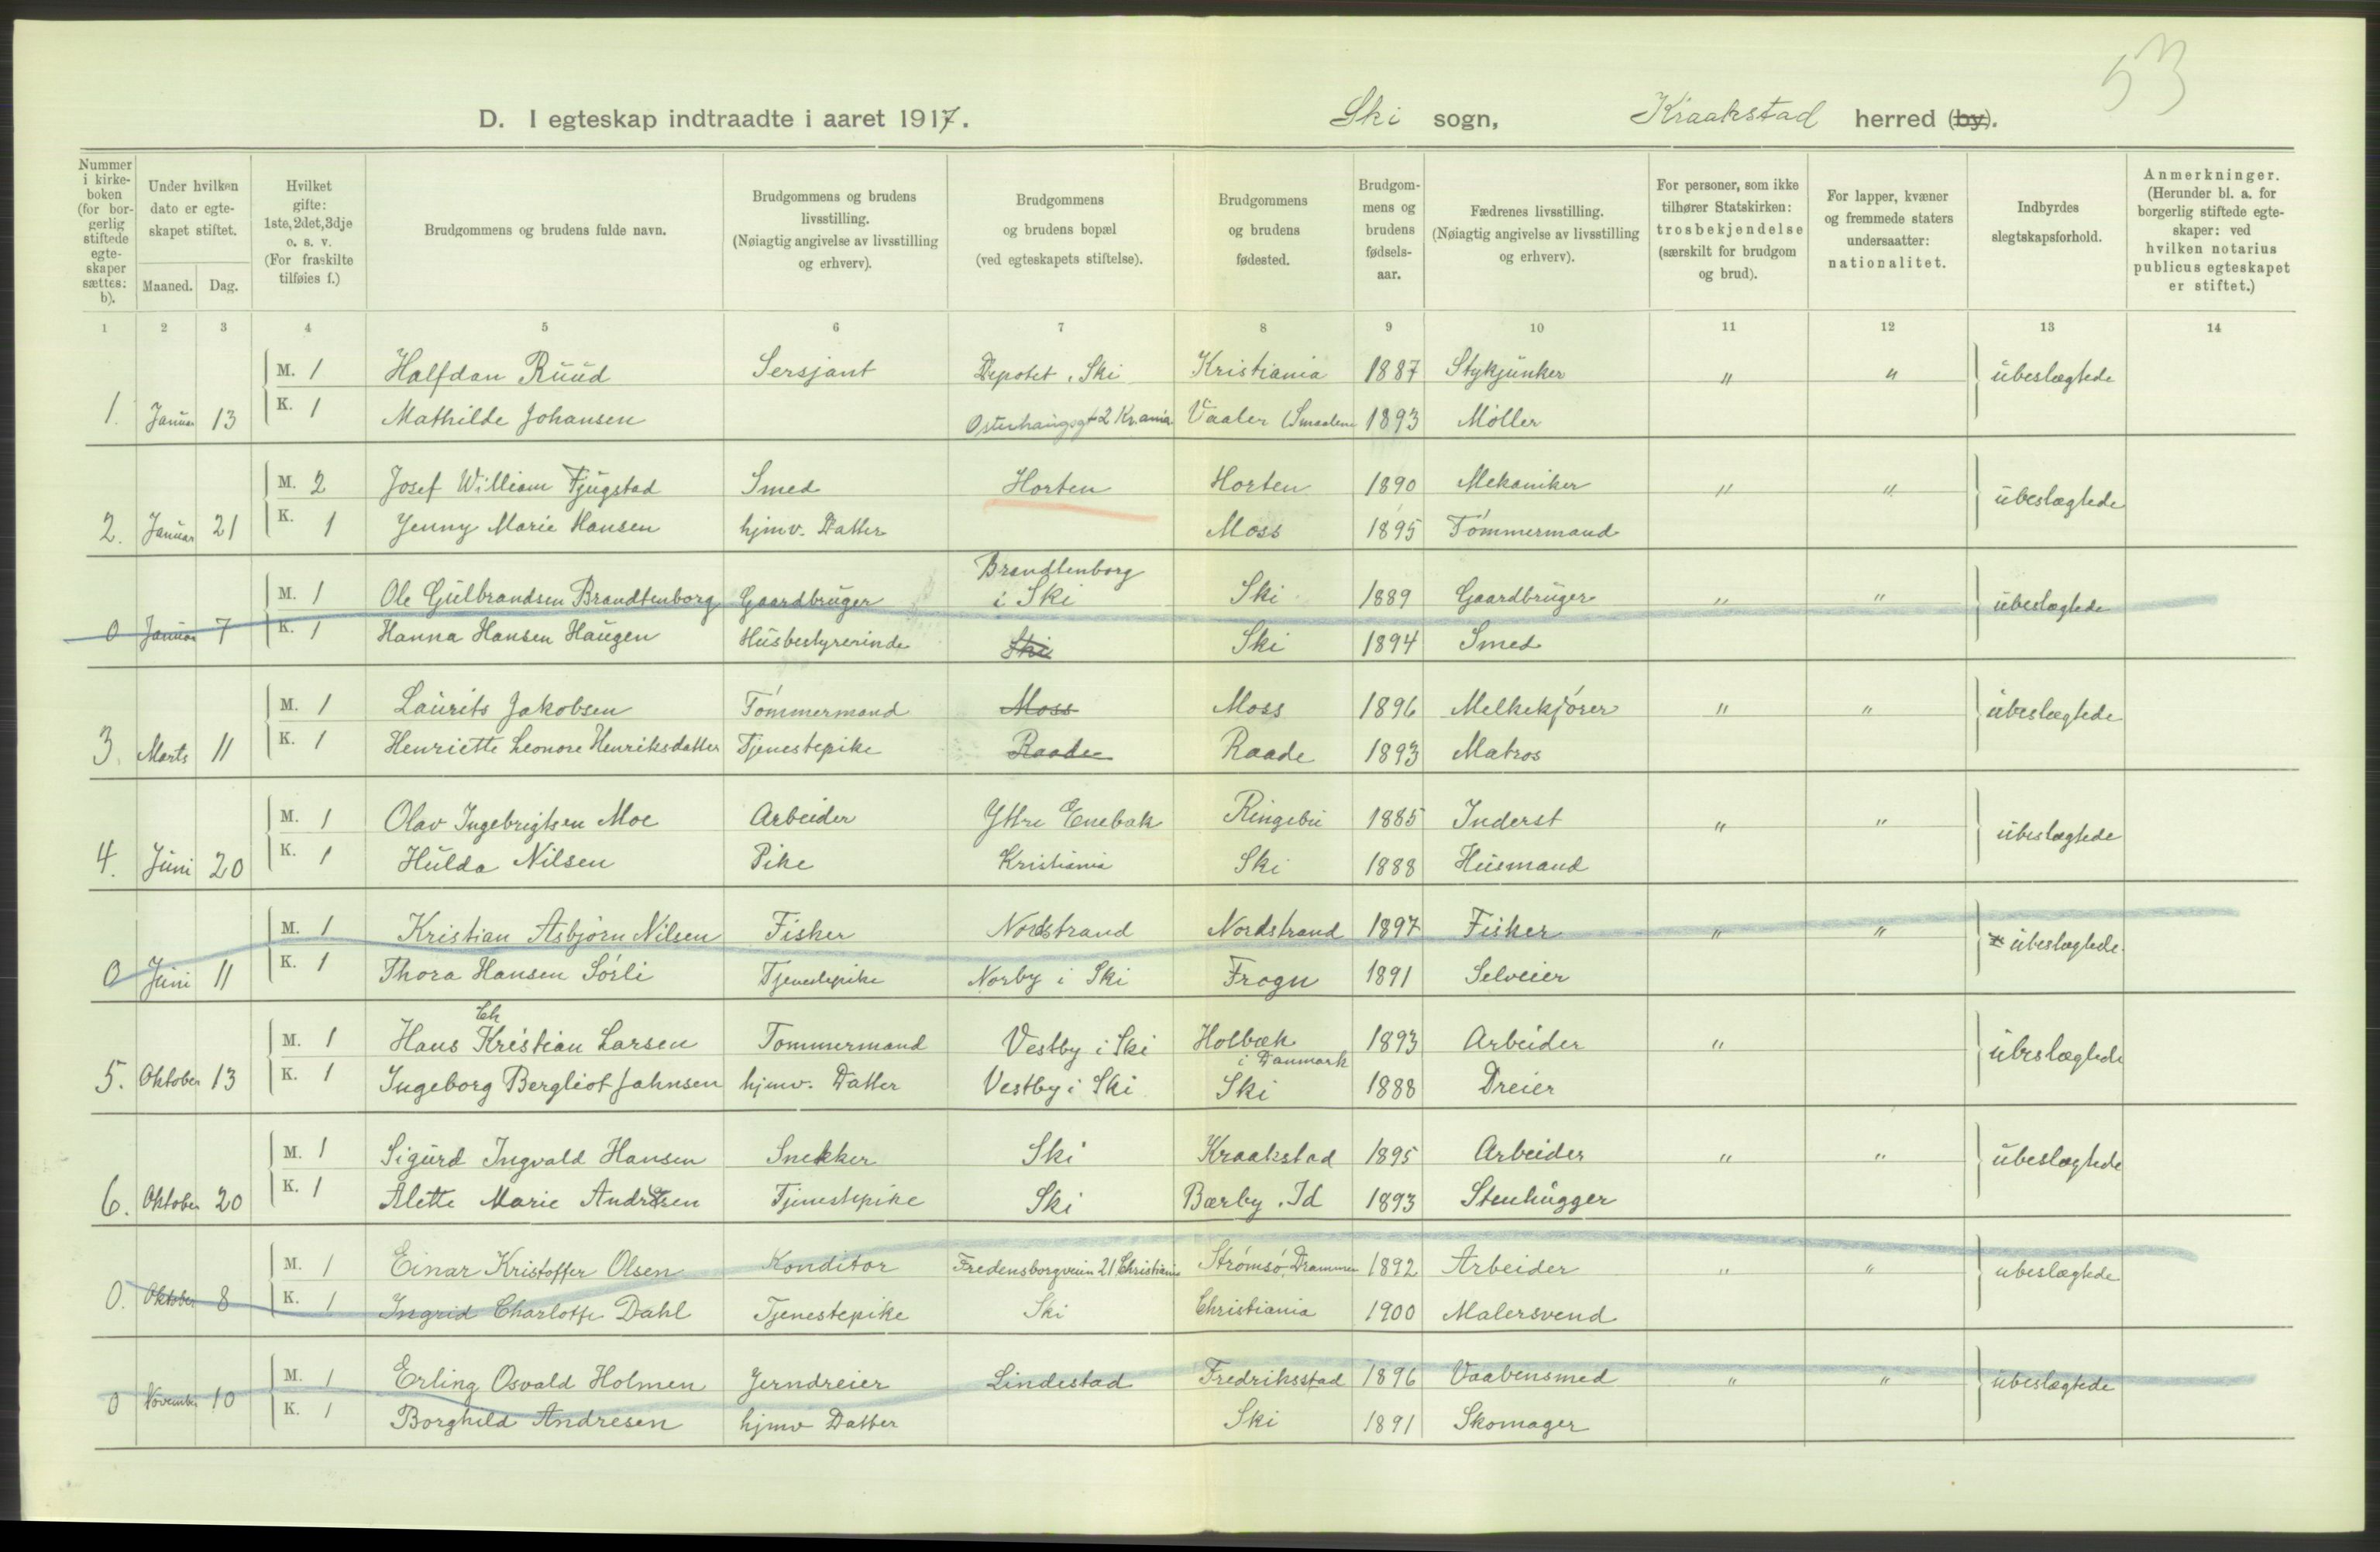 53
D. I egteskap indtraadte i aaret 1917. Ski sogn, Kraakstad herred (by).
Nummer i kirkeboken (for borgerlig stiftede egteskaper sættes: b).
Under hvilken dato er egteskapet stiftet.
Maaned. Dag.
Hvilket gifte: 1ste, 2det, 3dje o. s. v. (For fraskilte tilføies f.)
Brudgommens og brudens fulde navn.
Brudgommens og brudens livsstilling. (Nøiagtig angivelse av livsstilling og erhverv).
Brudgommens og brudens bopæl (ved egteskapets stiftelse).
Brudgommens og brudens fødested.
Brudgommens og brudens fødselsaar.
Fædrenes livsstilling. (Nøiagtig angivelse av livsstilling og erhverv).
For personer, som ikke tilhører Statskirken: trosbekjendelse (særskilt for brudgom og brud).
For lapper, kvæner og fremmede staters undersaatter: nationalitet.
Indbyrdes slegtskapsforhold.
Anmerkninger. (Herunder bl. a. for borgerlig stiftede egteskaper: ved hvilken notarius publicus egteskapet er stiftet.)
1 2 3 4 5 6 7 8 9 10 11 12 13 14
M. 1 Halfdan Ruud Sersjant Depotet, Ski Kristiania 1887 Stykjunker " " ubeslægtede
1. Januar 13 K. 1 Mathilde Johansen 2 Kr.ania Vaaler (Smaalene 1893 Møller
M. 2 Josef William Fjugstad Smed Horten Horten 1890 Mekaniker " " ubeslægtede
2. Januar 21 K. 1 Jenny Marie Hansen hjmv. Datter Moss 1895 Tømmermand
Brandtenborg
M. 1 Ole Gulbrandsen Brandtenborg Gaardbruger i Ski Ski 1889 Gaardbruger " " ubeslægtede
0 Januar 7 K. 1 Hanna Hansen Haugen Husbestyrerinde Ski Ski 1894 Smed
M. 1 Laurits Jakobsen Tømmermand Moss Moss 1896 Melkekjører " " ubeslægtede
3. Marts 11 K. 1 Henriette Leonore Henriksdatter Tjenestepike Raade Raade 1893 Matros
M. 1 Olav Ingebrigtsen Moe Arbeider Yttre Enebak Ringebu 1885 Inderst " " ubeslægtede
4. Juni 20 K. 1 Hulda Nilsen Pike Kristiania Ski 1888 Husmand
M. 1 Kristian Asbjørn Nilsen Fisker Nordstrand Nordstrand 1897 Fisker " " ubeslægtede.
0 Juni 11 K. 1 Thora Hansen Sørli Tjenestepike Norby i Ski Frogn 1891 Selveier
Ch
M. 1 Hans Kristian Larsen Tømmermand Vestby i Ski Holbæk i Danmark 1893 Arbeider " ubeslægtede
5. Oktober 13 K. 1 Ingeborg Bergliot Jahnsen hjmv. Datter Vestby i Ski Ski 1888 Dreier
M. 1 Sigurd Ingvald Hansen Snekker Ski Kraakstad 1895 Arbeider " " ubeslægtede
6. Oktober 20 K. 1 Alette Marie Andresen Tjenestepike Ski Bærby, Id 1893 Stenhugger
M. 1 Einar Kristoffer Olsen Konditor Fredensborgveien 21 Christiania Strømsø, Drammen 1892 Arbeider " " ubeslægtede
0. Oktober 8 K. 1 Ingrid Charlotte Dahl Tjenestepike Ski Christiania 1900 Malersvend
M. 1 Erling Osvald Holmen Jerndreier Lindestad Fredriksstad 1896 Vaabensmed " " ubeslægtede
0 November 10 K. 1 Borghild Andresen hjmv Datter Ski 1891 Skomager